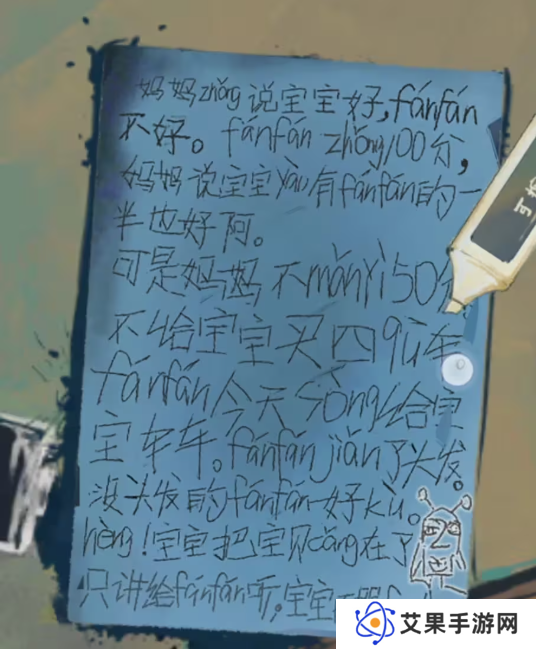 妈妈zhǒng说宝宝好,fánfán
不好。fánfán zhǒng100分,
妈妈说宝宝yàu有fánfán的一
半也好阿。
可是妈妈不mǎnyì50分
不给宝宝买四qū车
fánfán今天sòng给宝
宝车车。fánfán jiǎn了头发。
没头发的fánfán一好kù。
hèng!宝宝把宝贝cáng在了
只讲给fánfán听,宝宝
艾果手游网